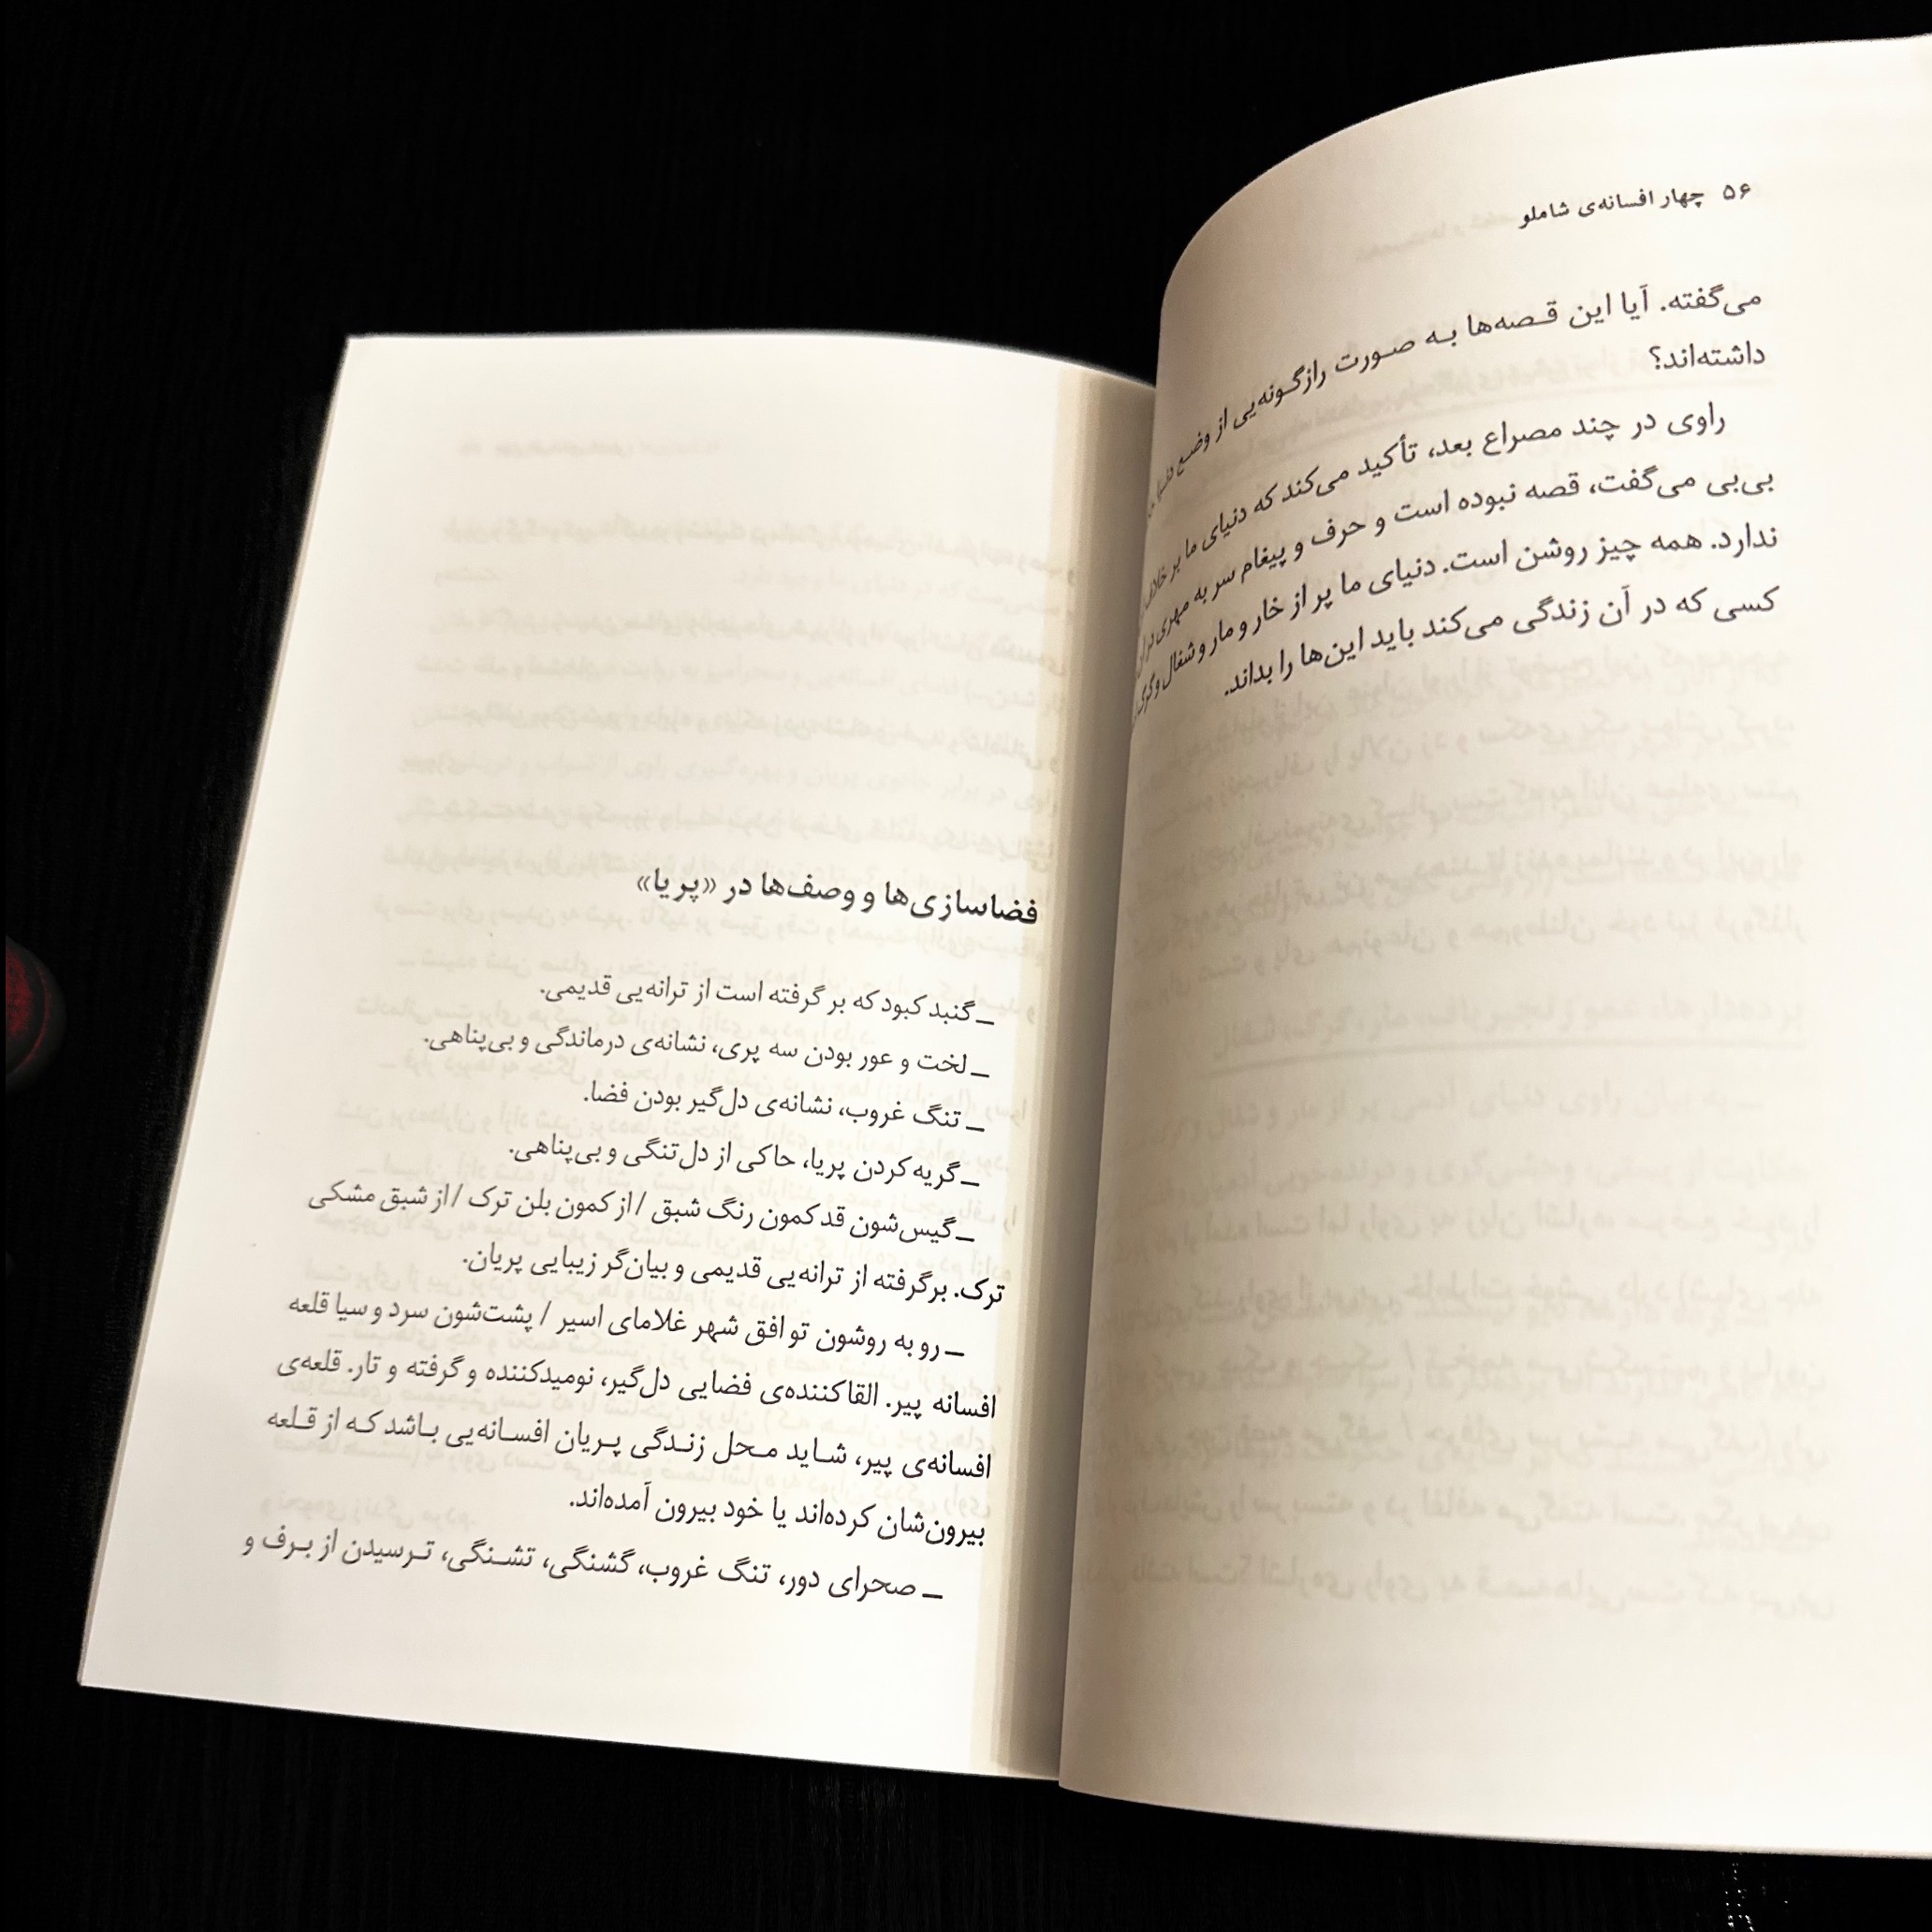 ۵۶ چهار افسانه‌ی شاملو
می‌گفته. آیا این قصه‌ها به صورت رازگونه‌یی از وضع
داشته‌اند؟
راوی در چند مصراع بعد، تأکید می‌کند که دنیای ما بر خلاف
بی‌بی می‌گفت، قصه نبوده است و حرف و پیغام سر به مهری در آن
ندارد. همه چیز روشن است. دنیای ما پر از خار و مار و شغال و گرگ
کسی که در آن زندگی می‌کند باید این‌ها را بداند.
فضاسازی‌ها و وصف‌ها در «پریا»
ـ گنبد کبود که بر گرفته است از ترانه‌یی قدیمی.
ـ لخت و عور بودن سه پری، نشانه‌ی درماندگی و بی‌پناهی.
ـ تنگ غروب، نشانه‌ی دل‌گیر بودن فضا.
ـ گریه کردن پریا، حاکی از دل‌تنگی و بی‌پناهی.
ـ گیس‌شون قد کمون رنگ شبق / از کمون بلن ترک / از شبق مشکی
ترک. برگرفته از ترانه‌یی قدیمی و بیان‌گر زیبایی پریان.
ـ رو به روشون تو افق شهر غلامای اسیر / پشت‌شون سرد و سیا قلعه
افسانه پیر. القاکننده‌ی فضایی دل‌گیر، نومیدکننده و گرفته و تار. قلعه‌ی
افسانه‌ی پیر، شاید محل زندگی پریان افسانه‌یی باشد که از قلعه
بیرون‌شان کرده‌اند یا خود بیرون آمده‌اند.
ـ صحرای دور، تنگ غروب، گشنگی، تشنگی، ترسیدن از برف و